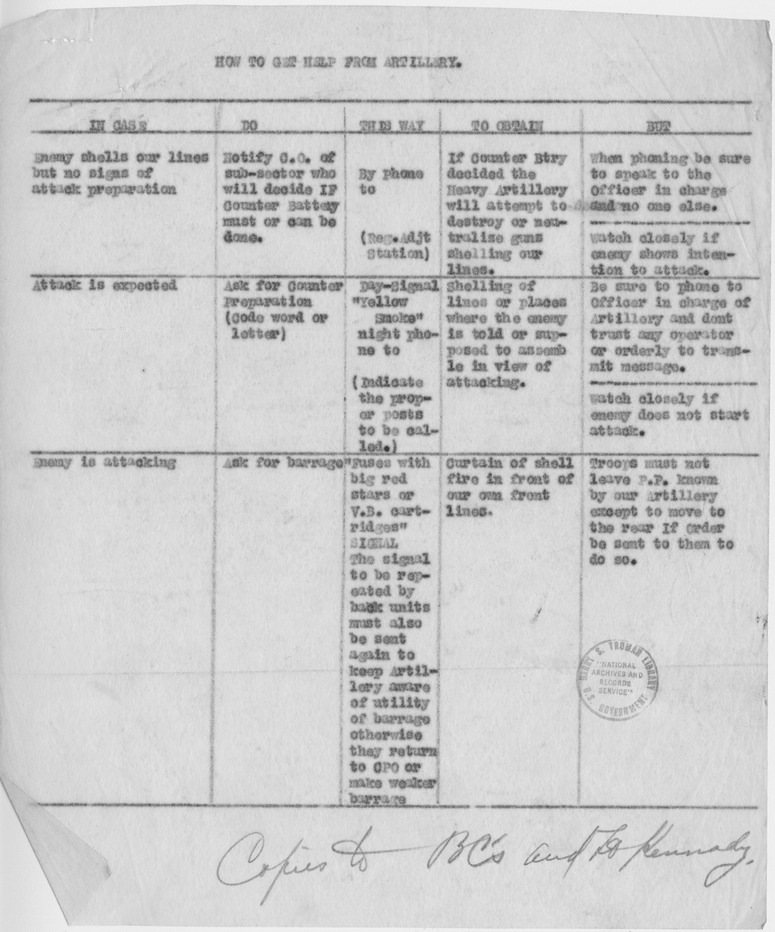 HOW TO GET HELP FROM ARTILLERY.
IN CASE DO THIS WAY TO OBTAIN BUT
Enemy shells our lines
but no signs of
attack preparation
Notify C.O. of
sub-sector who
will decide IF
Counter Battery
must or can be
done.
By phone
to
(Reg.Adjt
Station)
If Counter Btry
decided the
Heavy Artillery
will attempt to
destroy or neu-
tralize guns
shelling our
lines.
When phoning be sure
to speak to the
Officer in charge
and no one else.
Watch closely if
enemy shows inten-
tion to attack.
Attack is expected
Ask for Counter
Preparation
(Code word or
letter)
Day-Signal
"Yellow
Smoke"
night pho-
ne to
(Indicate
the prop-
er posts
to be cal-
led.)
Shelling of
lines or places
where the enemy
is told or sup-
posed to assemb
le in view of
attacking.
Be sure to phone to
Officer in charge of
Artillery and dont
trust any operator
or orderly to trans-
mit message.
Watch closely if
enemy does not start
attack.
Enemy is attacking
Ask for barrage
"Fuses with
big red
stars or
V.B. cart-
ridges"
SIGNAL
The signal
to be rep-
eated by
back units
must also
be sent
again to
keep Artil-
lery aware
of utility
of barrage
otherwise
they return
to CPO or
make weaker
barrage
Curtain of shell
fire in front of
our own front
lines.
Troops must not
leave P.P. known
by our Artillery
except to move to
the rear If order
be sent to them to
do so.
HARRY S. TRUMAN LIBRARY
"NATIONAL
ARCHIVES AND
RECORDS
SERVICE"
U.S. GOVERNMENT
Copies to BC's and Lt Kennady.